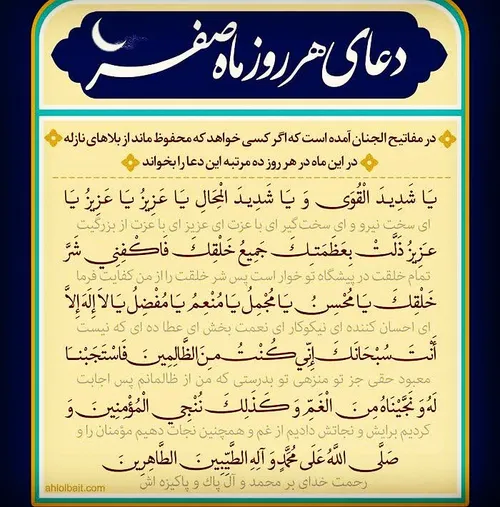 دعای هر روز ماه صفر
در مفاتیح الجنان آمده است که اگر کسی خواهد که محفوظ ماند از بلاهای نازله
در این ماه در هر روز ده مرتبه این دعا را بخواند
یَا شَدِیدَ الْقُوَی وَ یَا شَدِیدَ الْمِحَالِ یَا عَزِیزُ یَا عَزِیزُ یَا
ای سخت نیرو و ای سخت گیر ای با عزت ای عزیز ای با عزت از بزرگیت
عَزِیزُ ذَلَّتْ بِعَظَمَتِکَ جَمِیعُ خَلْقِکَ فَاکْفِنِی شَرَّ
تمام خلقت در پیشگاه تو خوار است پس شر خلقت را از من کفایت فرما
خَلْقِکَ یَا مُحْسِنُ یَا مُجْمِلُ یَا مُنْعِمُ یَا مُفْضِلُ یَا لاَ إِلَهَ إِلاَّ
ای احسان کننده ای نیکوکار ای نعمت بخش ای عطا ده ای که نیست
أَنْتَ سُبْحَانَکَ إِنِّی کُنْتُ مِنَ الظَّالِمِینَ فَاسْتَجَبْنَا
معبود حقی جز تو منزهی تو بدرستی که من از ظالمانم پس اجابت
لَهُ وَ نَجَّیْنَاهُ مِنَ الْغَمِّ وَ کَذَلِکَ نُنْجِی الْمُؤْمِنِینَ وَ
کردیم برایش و نجاتش دادیم از غم و همچنین نجات دهیم مؤمنان را و
صَلَّی اللَّهُ عَلَی مُحَمَّدٍ وَ آلِهِ الطَّیِّبِینَ الطَّاهِرِینَ
رحمت خدای بر محمد و آل پاک و پاکیزه اش
ahlolbait.com